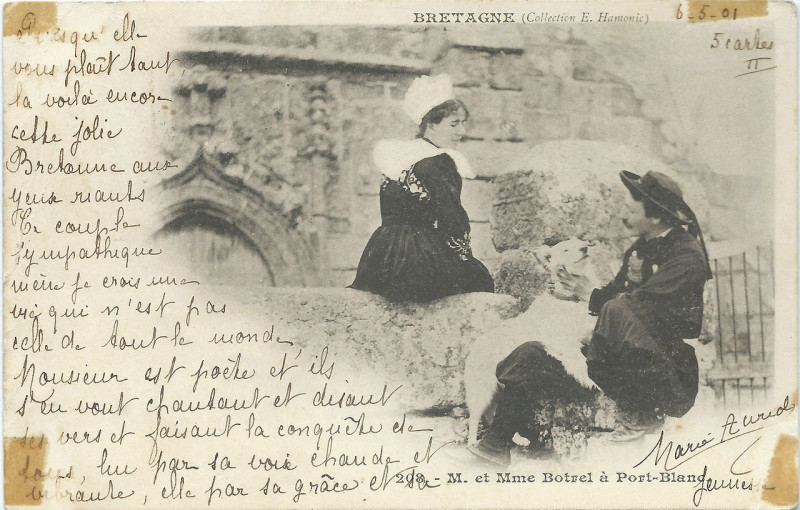 BRETAGNE (Collection E. Hamonic)
6-5-01
5 cartes
II
Puisqu'elle
vous plaît tant,
la voilà encore
cette jolie
Bretonne aux
yeux riants
Ce couple
sympathique
mène je crois une
vie qui n'est pas
celle de tout le monde,
Monsieur est poète et ils
s'en vont chantant et disant
ses vers et faisant la conquête de
tous, lui par sa voix chaude et
vibrante, elle par sa grâce et sa
jeunesse
Marie
208. - M. et Mme Botrel à Port-Blanc